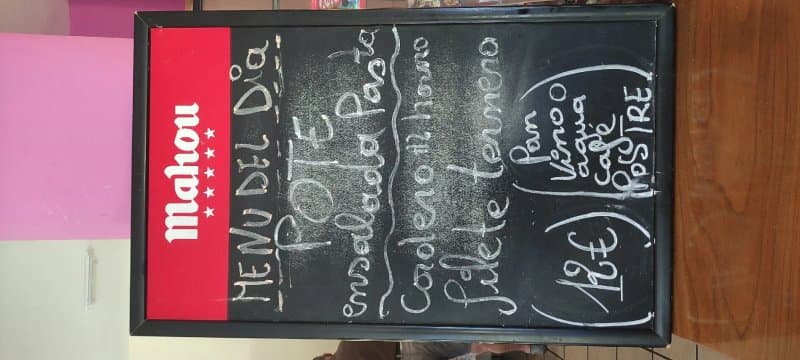 Mahou
MENU DEL DIA
POTE
ensalada Pasta
Cordero al horno
filete ternera
(12€)
(Pan
Vino o
agua
café
POSTRE)